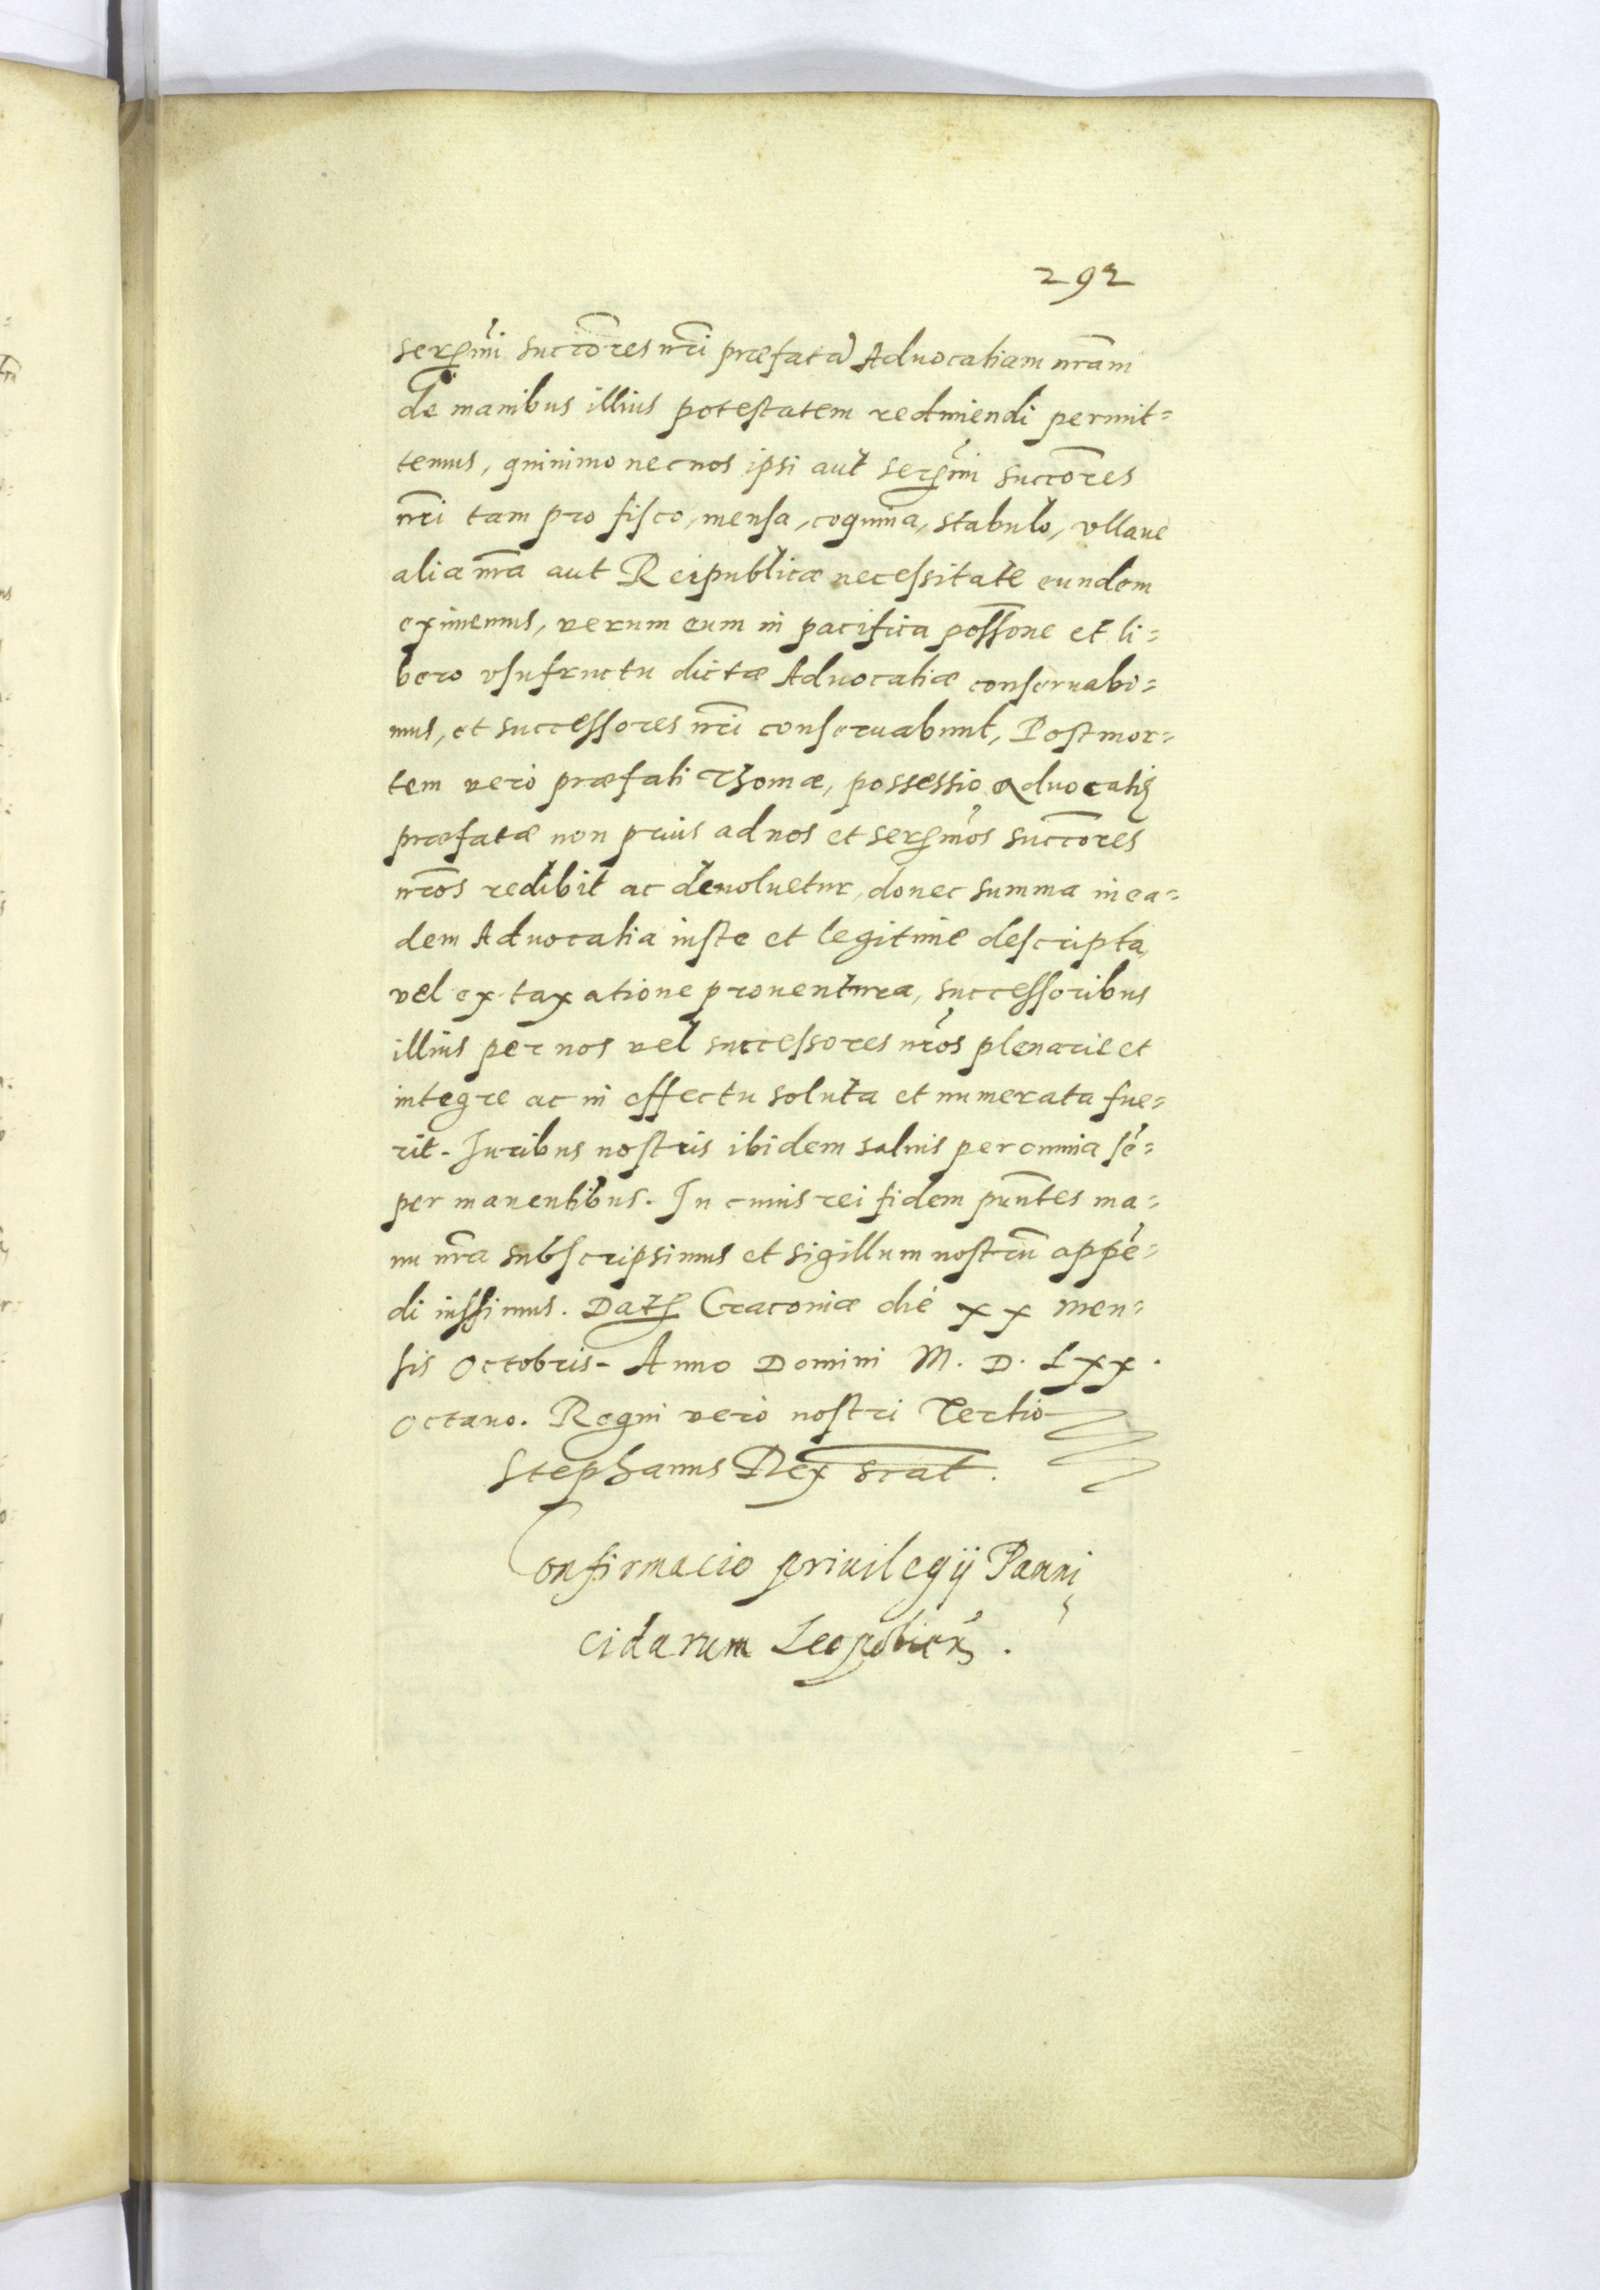 292
serẽmi succõres nr̃i præfatã Aduocatiam nr̃am
de manibus illius potestatem redimiendi permit=
temus, quinimo nec nos ipsi aut serẽmi succõres
nr̃i tam pro fisco, mensa, coquina, stabulo, vllaue
alia nr̃a aut Reipublicæ necessitate eundem
eximemus, verum eum in pacifica poss̃one et li=
bero vsufructu dictæ Aduocatiæ conseruabi=
mus, et successores nr̃i conseruabunt, Post mor=
tem vero præfati Thomæ, possessio Aduocatię
præfatæ non prius ad nos et serẽmos succõres
nr̃os redibit ac deuoluetur, donec summa in ea=
dem Aduocatia iuste et legitime descripta,
vel ex taxatione prouentura, successoribus
illius per nos vel successores nr̃os plenarie et
integre ac in effectu soluta et numerata fue=
rit. Iuribus nostris ibidem saluis per omnia sẽ=
per manentibus. In cuius rei fidem pñtes ma=
nu nr̃a subscripsimus et sigillum nostrũ appẽ=
di iussimus. Datę Cracouiæ die xx men=
sis Octobris. Anno Domini M. D. Lxx.
Octauo. Regni vero nostri Tertio
Stephanus Rex scat̃.
Confirmacio priuilegij Panni
cidarum Leopolien̄.